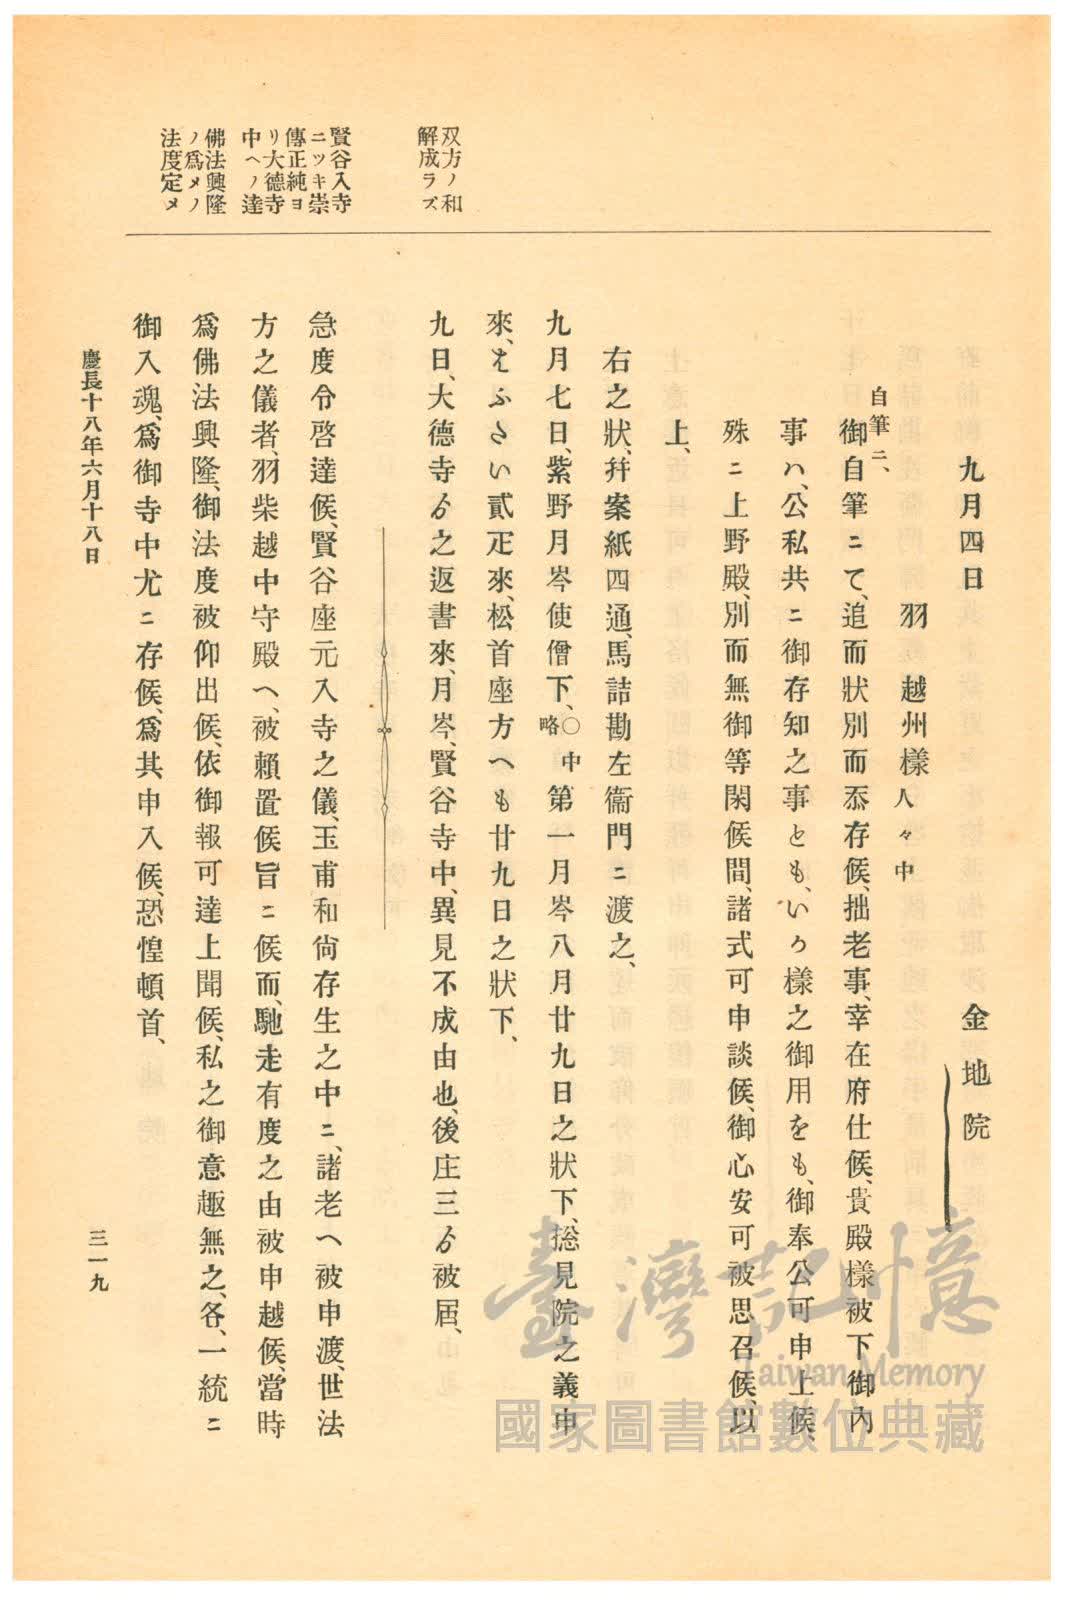 双方ノ和
解成ラズ
賢谷入寺
ニツキ崇
傳正純ヨ
リ大德寺
中ヘノ達
佛法興隆
ノ爲メノ
法度定メ
九月四日 金地院
羽越州樣 人々中
自筆ニ、
御自筆ニて、追而狀別而忝存候、拙老事、幸在府仕候、貴殿樣被下御內
事ハ、公私共ニ御存知之事とも、いか樣之御用をも、御奉公可申上候、
殊ニ上野殿、別而無御等閑候間、諸式可申談候、御心安可被思召候、以
上、
右之狀、幷案紙四通、馬詰勘左衞門ニ渡之、
九月七日、紫野月岑使僧下、〇中略第一月岑八月廿九日之狀下、捴見院之義申
來、とふさい貳疋來、松首座方へも廿九日之狀下、
九日、大德寺ゟ之返書來、月岑、賢谷寺中、異見不成由也、後庄三ゟ被屆、
急度令啓達候、賢谷座元入寺之儀、玉甫和尙存生之中ニ、諸老へ被申渡、世法
方之儀者、羽柴越中守殿へ、被賴置候旨ニ候而、馳走有度之由被申越候、當時
爲佛法興隆、御法度被仰出候、依御報可達上聞候、私之御意趣無之、各、一統ニ
御入魂、爲御寺中尤ニ存候、爲其申入候、恐惶頓首、
慶長十八年六月十八日
三一九
臺灣記憶
Taiwan Memory
國家圖書館數位典藏